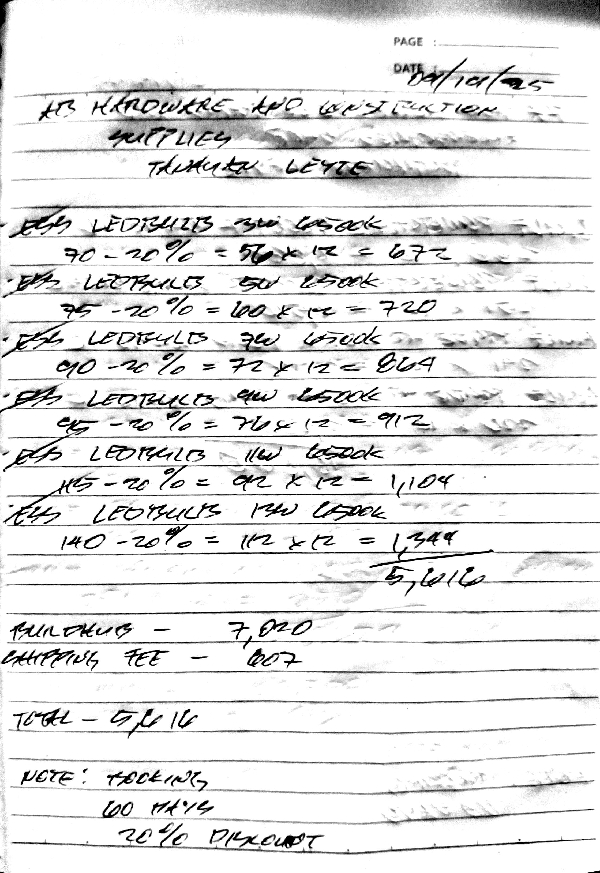 PAGE :
DATE : 09/19/25
AB HARDWARE AND CONSTRUCTION
SUPPLIES
TANAUAN LEYTE
LEDBULB 3W 6500K
70 - 20% = 56 x 12 = 672
LEDBULB 5W 6500K
75 - 20% = 60 x 12 = 720
LEDBULB 7W 6500K
90 - 20% = 72 x 12 = 864
LEDBULB 9W 6500K
95 - 20% = 76 x 12 = 912
LEDBULB 11W 6500K
115 - 20% = 92 x 12 = 1,104
LEDBULB 13W 6500K
140 - 20% = 112 x 12 = 1,344
5,616
BUILDHUB - 7,020
SHIPPING FEE - 607
TOTAL - 5,616
NOTE: BOOKING
60 DAYS
20% DISCOUNT